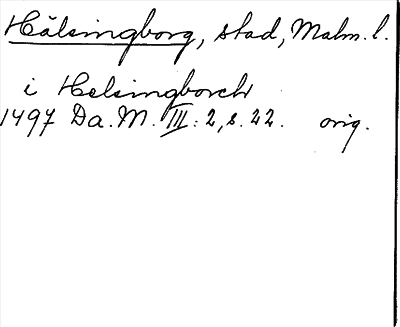 Hälsingborg, stad, Malm. l.
i Helsingborch
1497 Da. M. III: 2, s. 22. orig.